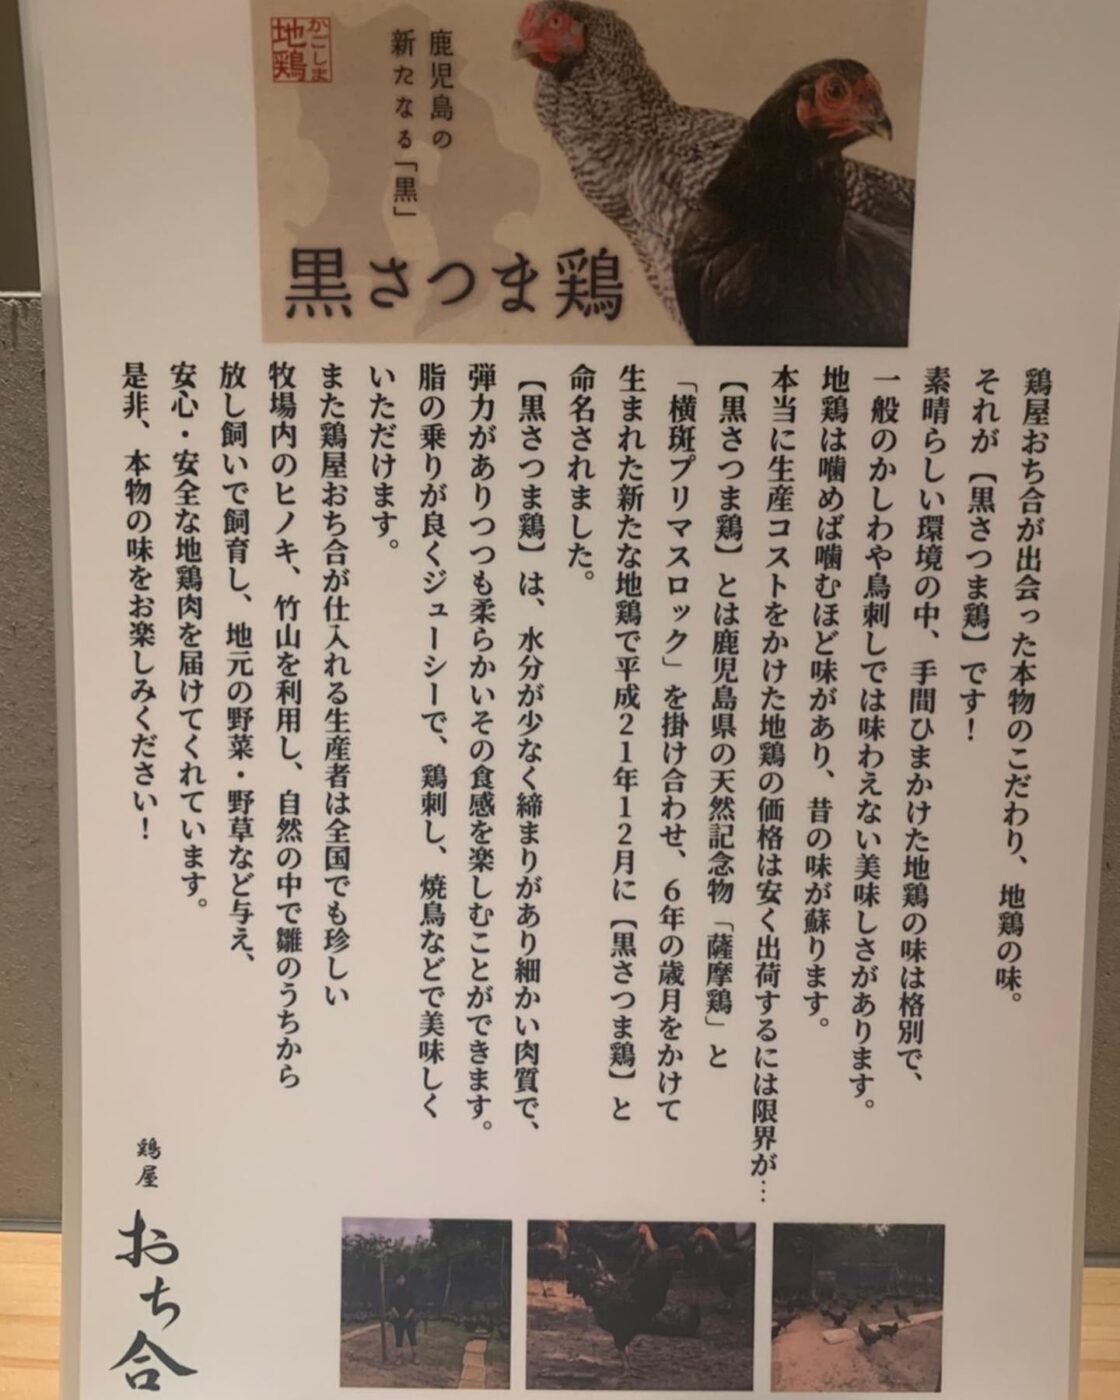 かごしま
地鶏
鹿児島の
新たなる「黒」
黒さつま鶏
鶏屋おち合が出会った本物のこだわり、地鶏の味。
それが【黒さつま鶏】です！
素晴らしい環境の中、手間ひまかけた地鶏の味は格別で、
一般のかしわや鳥刺しでは味わえない美味しさがあります。
地鶏は噛めば噛むほど味があり、昔の味が蘇ります。
本当に生産コストをかけた地鶏の価格は安く出荷するには限界が…
【黒さつま鶏】とは鹿児島県の天然記念物「薩摩鶏」と
「横斑プリマスロック」を掛け合わせ、６年の歳月をかけて
生まれた新たな地鶏で平成２１年１２月に【黒さつま鶏】と
命名されました。
【黒さつま鶏】は、水分が少なく締まりがあり細かい肉質で、
弾力がありつつも柔らかいその食感を楽しむことができます。
脂の乗りが良くジューシーで、鶏刺し、焼鳥などで美味しく
いただけます。
また鶏屋おち合が仕入れる生産者は全国でも珍しい
牧場内のヒノキ、竹山を利用し、自然の中で雛のうちから
放し飼いで飼育し、地元の野菜・野草など与え、
安心・安全な地鶏肉を届けてくれています。
是非、本物の味をお楽しみください！
鶏屋
おち合